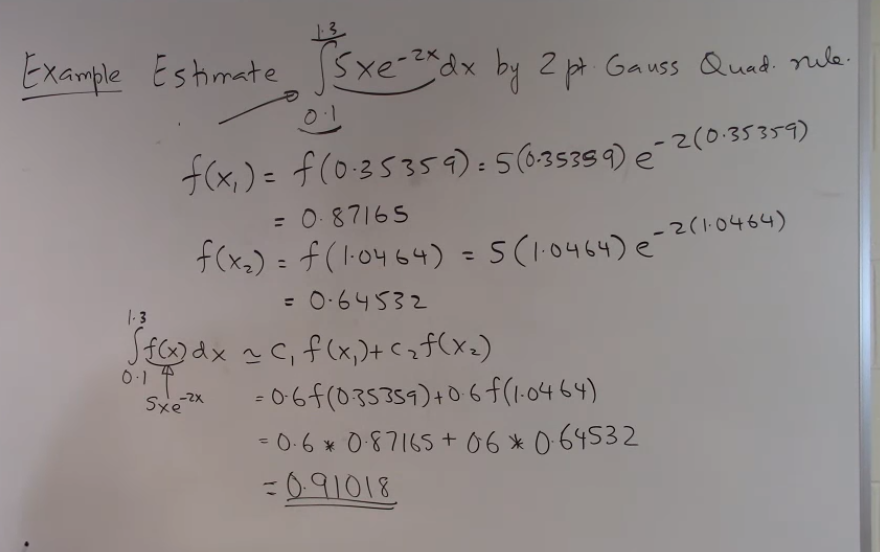 Example Estimate ∫₀.₁^1.3 5xe^-2x dx by 2 pt. Gauss Quad. rule.
f(x₁) = f(0.35359) = 5(0.35359) e^-2(0.35359)
= 0.87165
f(x₂) = f(1.0464) = 5(1.0464) e^-2(1.0464)
= 0.64532
∫₀.₁^1.3 f(x) dx ≃ c₁ f(x₁) + c₂ f(x₂)
5xe^-2x = 0.6f(0.35359) + 0.6f(1.0464)
= 0.6 * 0.87165 + 0.6 * 0.64532
= 0.91018